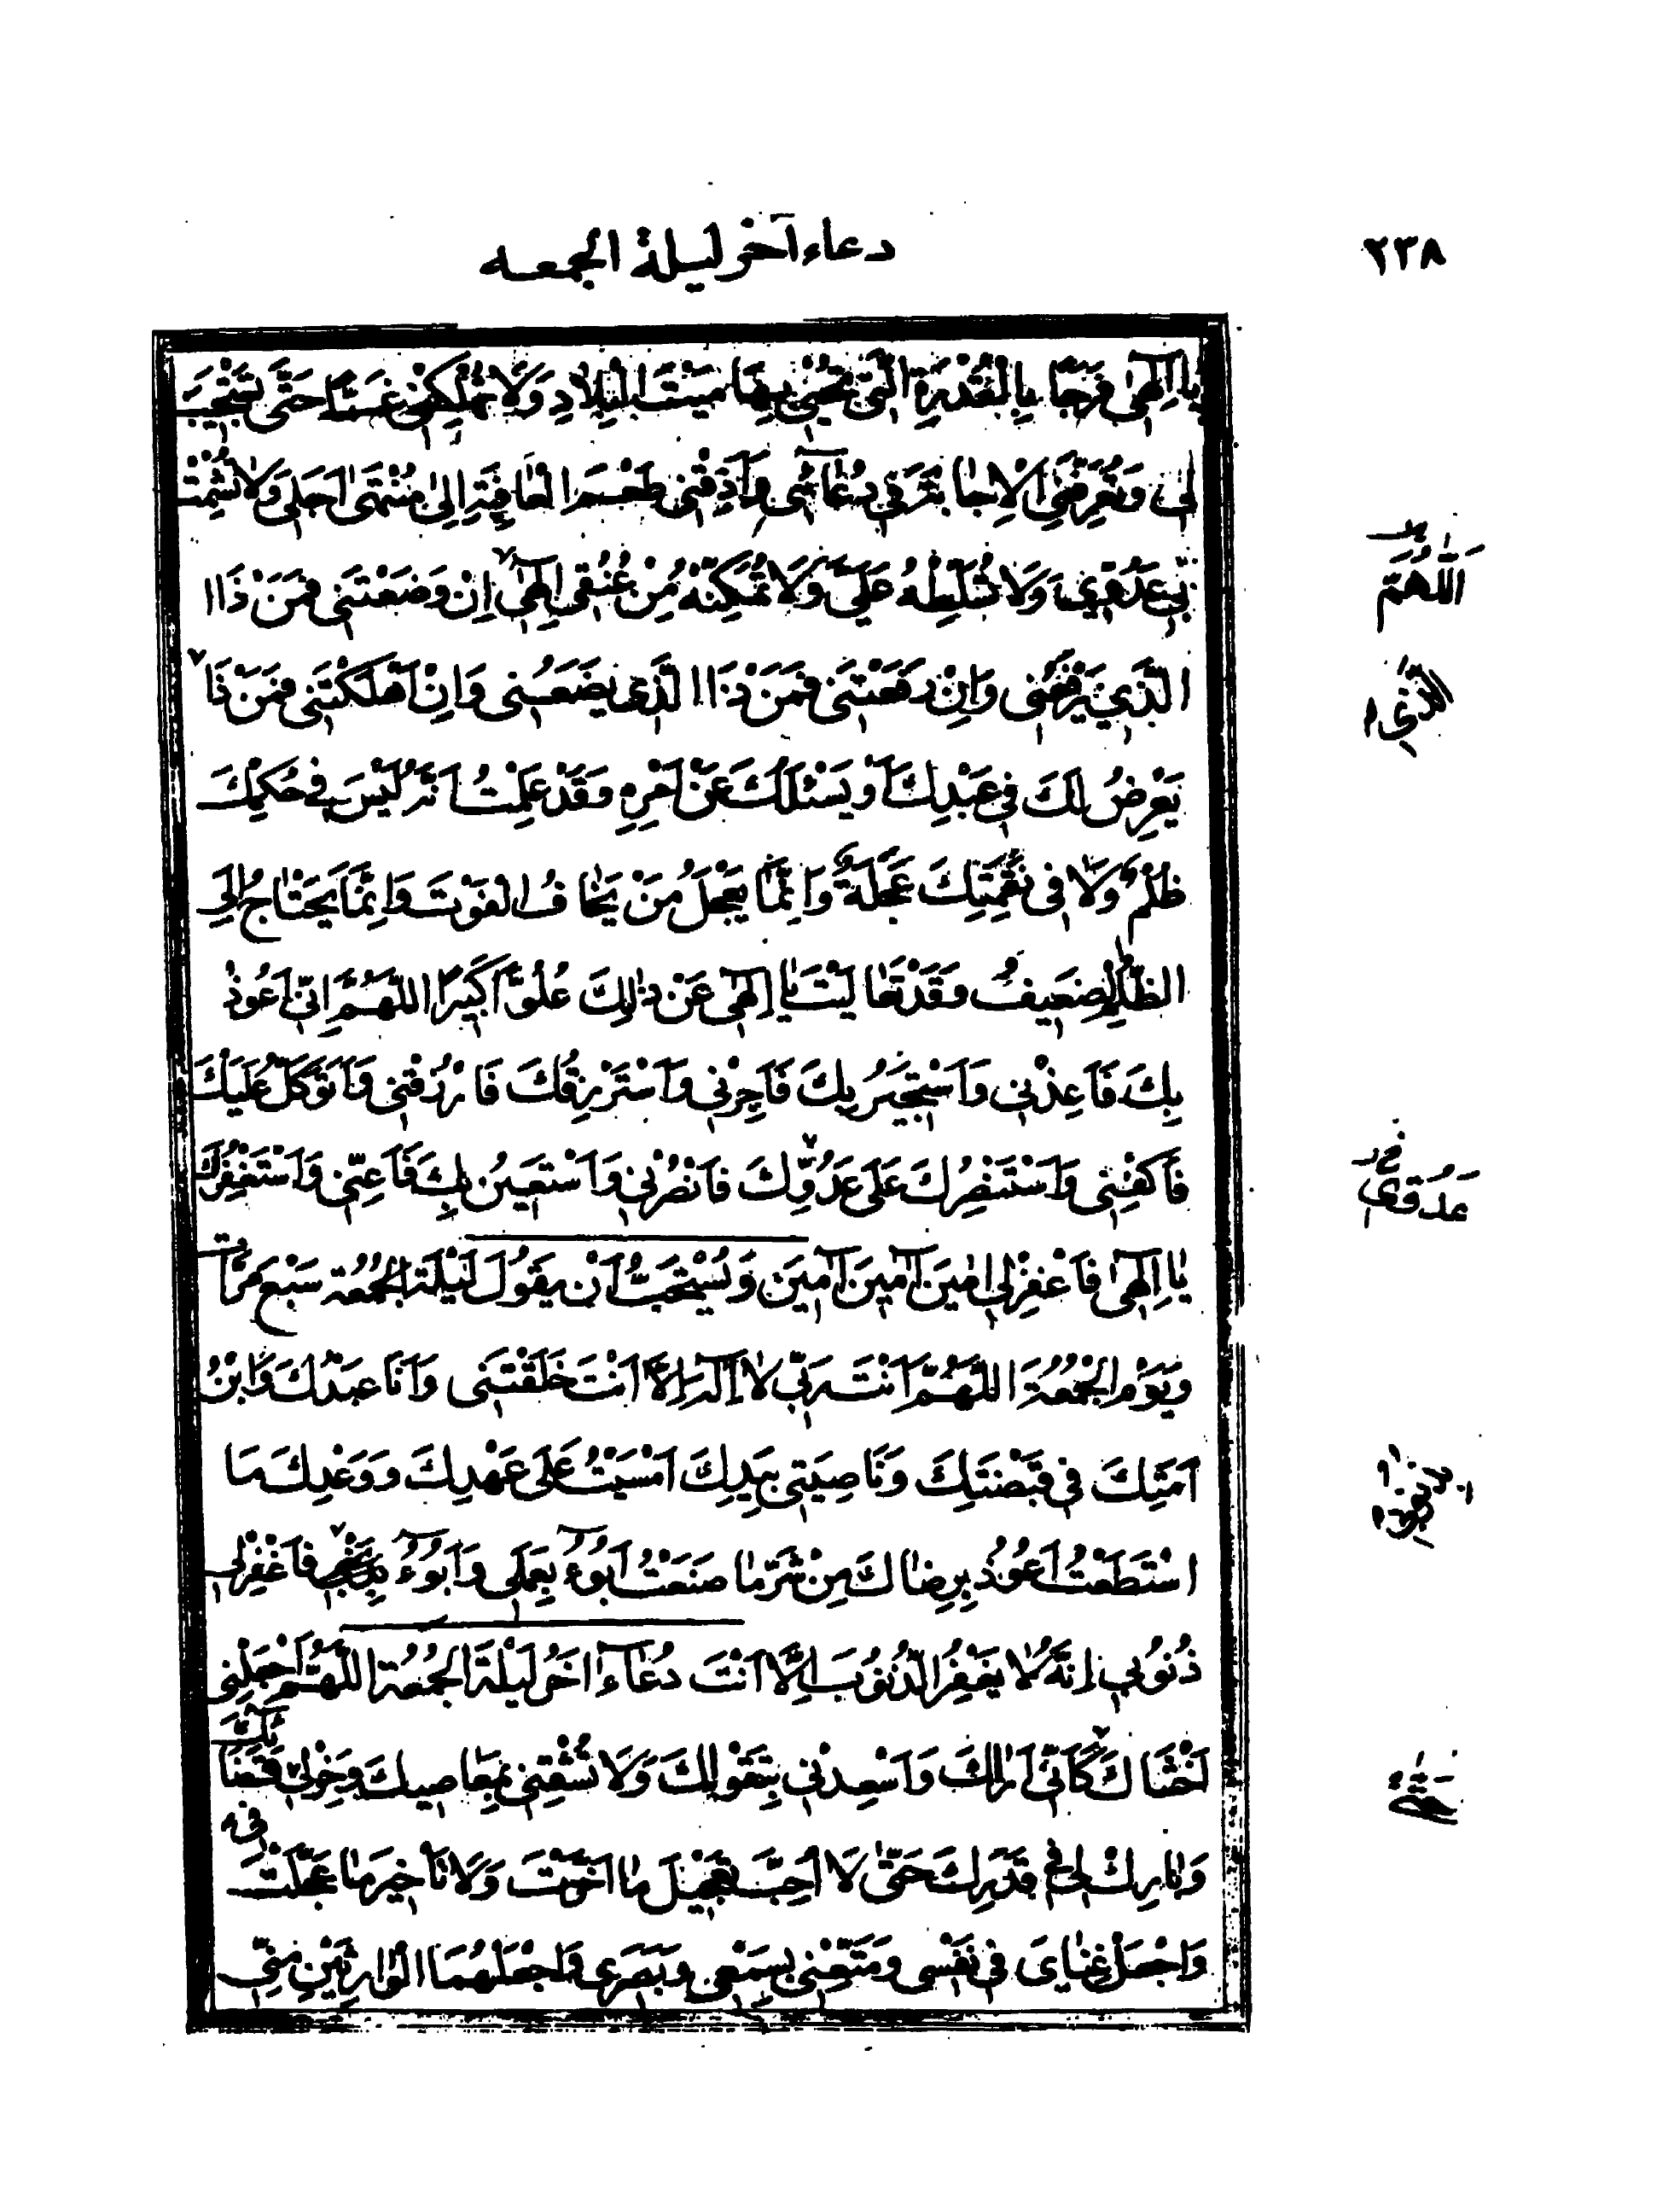 ٢٣٨
دعاء آخر ليلة الجمعه
يا اِلٰهى فَرَجًا بِالْقُدْرَةِ الَّتى تُحْيى بِها مَيْتَ الْبِلادِ وَلا تُهْلِكْنى غَمًّا حَتّى تَسْتَجيبَ
لى وَتُعَرِّفَنِى الْاِجابَةَ فى دُعائى وَاَذِقْنى طَعْمَ الْعافِيَةِ اِلى مُنْتَهى اَجَلى وَلا تُشْمِتْ
بى عَدُوّى وَلا تُسَلِّطْهُ عَلَىَّ وَلا تُمَكِّنْهُ مِنْ عُنُقى اِلٰهى اِنْ وَضَعْتَنى فَمَنْ ذَا ا
الَّذى يَرْفَعُنى وَاِنْ رَفَعْتَنى فَمَنْ ذَا الَّذى يَضَعُنى وَاِنْ اَهْلَكْتَنى فَمَنْ ذَا
يَعْرِضُ لَكَ فى عَبْدِكَ اَوْ يَسْئَلُكَ عَنْ اَمْرِهِ وَقَدْ عَلِمْتُ اَنَّهُ لَيْسَ فى حُكْمِكَ
ظُلْمٌ وَلا فى نَقِمَتِكَ عَجَلَةٌ وَاِنَّما يَعْجَلُ مَنْ يَخافُ الْفَوْتَ وَاِنَّما يَحْتاجُ اِلَى
الظُّلْمِ الضَّعيفُ وَقَدْ تَعالَيْتَ يا اِلٰهى عَنْ ذٰلِكَ عُلُوًّا كَبيرًا اَللّٰهُمَّ اِنّى اَعُوذُ
بِكَ فَاَعِذْنى وَاَسْتَجيرُ بِكَ فَاَجِرْنى وَاَسْتَرْزِقُكَ فَارْزُقْنى وَاَتَوَكَّلُ عَلَيْكَ
فَاكْفِنى وَاَسْتَنْصِرُكَ عَلى عَدُوِّكَ فَانْصُرْنى وَاَسْتَعينُ بِكَ فَاَعِنّى وَاَسْتَغْفِرُكَ
يا اِلٰهى فَاغْفِرْلى امينَ امينَ امينَ وَيُسْتَحَبُّ اَنْ يَقُولَ لَيْلَةَ الْجُمُعَةِ سَبْعَ مَرّاتٍ
وَيَوْمَ الْجُمُعَةِ اَللّٰهُمَّ اَنْتَ رَبّى لا اِلٰهَ اِلّا اَنْتَ خَلَقْتَنى وَاَنَا عَبْدُكَ وَابْنُ
اَمَتِكَ فى قَبْضَتِكَ وَناصِيَتى بِيَدِكَ اَمْسَيْتُ عَلى عَهْدِكَ وَوَعْدِكَ مَا
اسْتَطَعْتُ اَعُوذُ بِرِضاكَ مِنْ شَرِّ ما صَنَعْتُ اَبُوءُ بِعَمَلى وَاَبُوءُ فَاغْفِرْلى
ذُنُوبى اِنَّهُ لا يَغْفِرُ الذُّنُوبَ اِلّا اَنْتَ دُعاءٌ اخَرُ لَيْلَةَ الْجُمُعَةِ اَللّٰهُمَّ اجْعَلْنى
اَخْشاكَ كَاَنّى اَراكَ وَاَسْعِدْنى بِتَقْوٰيكَ وَلا تُشْقِنى بِمَعاصيكَ وَخِرْلى فى قَضائِكَ
وَبارِكْ لى فى قَدَرِكَ حَتّى لا اُحِبَّ تَعْجيلَ ما اَخَّرْتَ وَلا تَاْخيرَ ما عَجَّلْتَ
وَاجْعَلْ غِنٰاىَ فى نَفْسى وَمَتِّعْنى بِسَمْعى وَبَصَرى وَاجْعَلْهُمَا الْوارِثَيْنِ مِنّى
اَللّٰهُمَّ
الَّذى
عَدُوّى